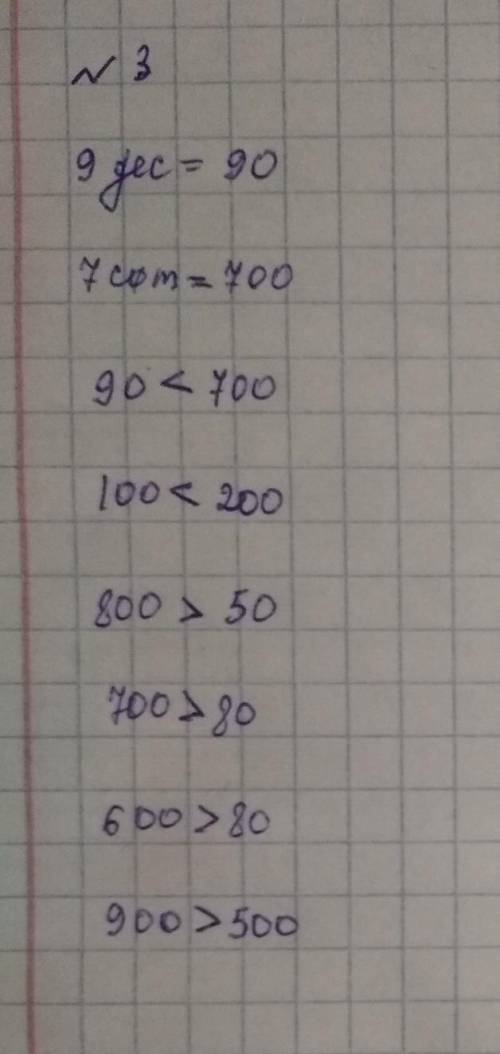 № 3
9 дес = 90
7 сот = 700
90 < 700
100 < 200
800 > 50
700 > 80
600 > 80
900 > 500